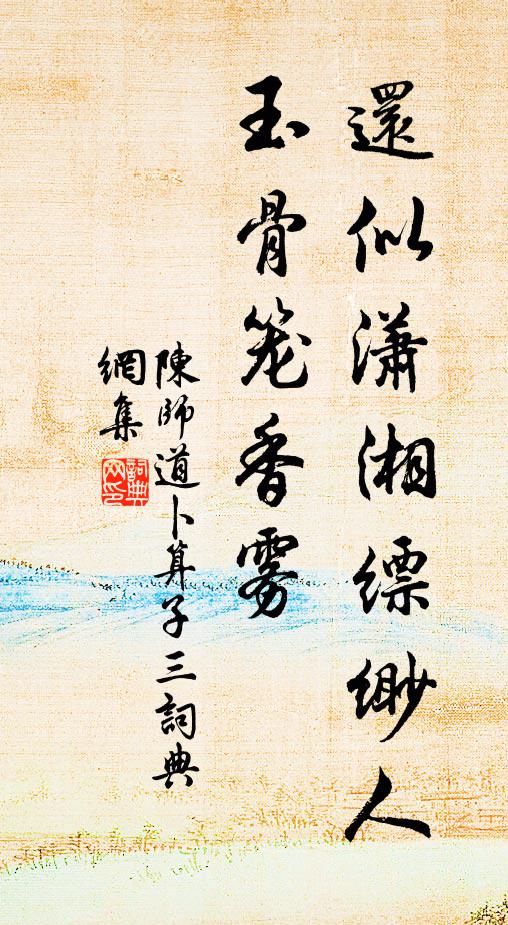 還似瀟湘縹缈人
玉骨笼香雾
陳師道卜算子三詞典
網集
詞典
网印